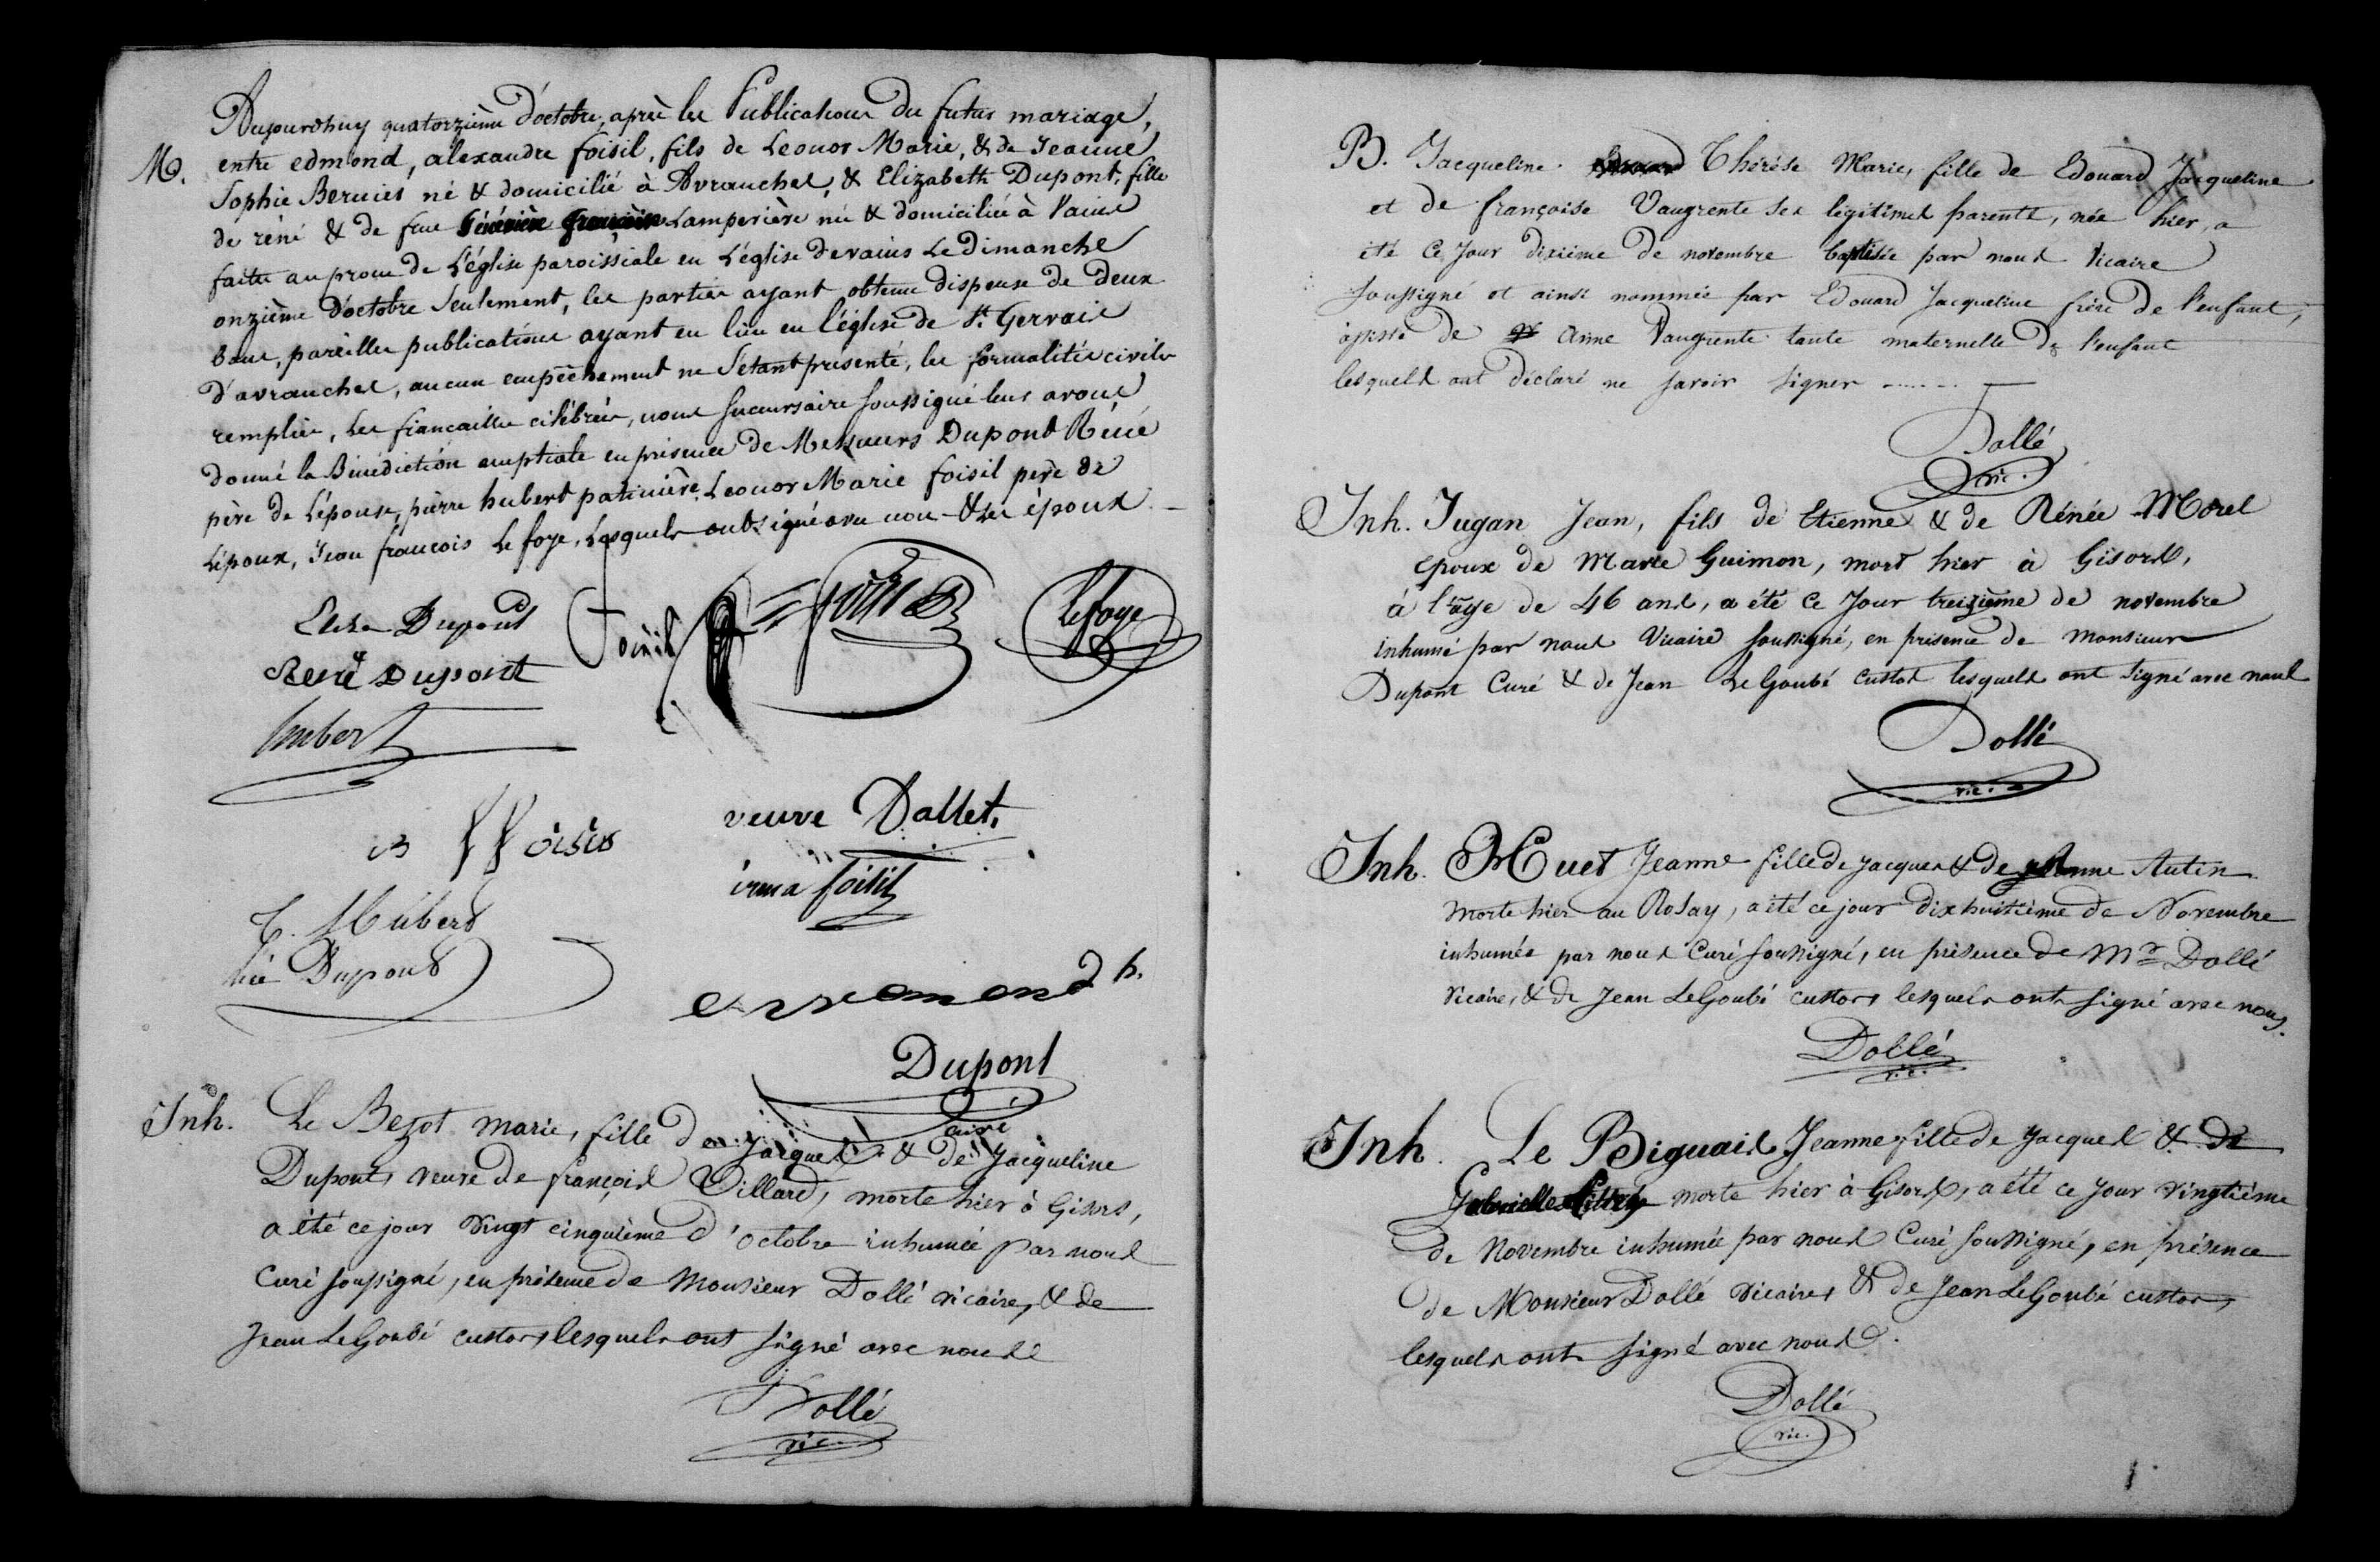 Aujourdhuy quatorzième d'octobre, après les Publications du futur mariage,
M. entre edmond, alexandre foisil, fils de Leonor Marie, & de Jeanne
Sophie Bernier né & domicilié à Avranches, & Elizabeth Dupont, fille
de réné & de feue françoise Lamperière née & domiciliée à Vains
faites au prone de L'église paroissiale en L'église de vains Le Dimanche
onzième d'octobre Seulement, les parties ayant obtenu dispense de Deux
bans, pareilles publications ayant eu lieu en l'église de St. Gervais
d'avranches, aucun empêchement ne S'étant présenté, les formalités civiles
remplies, Les fiancailles célébrées, nous Succursaire soussigné leur avons
donné la Bénédiction nuptiale en présence de Messieurs Dupont Réné
père de L'épouse, pierre hubert, Leonor Marie foisil père de
L'époux, Jean francois Le foye, Lesquels ont signé avec nous & Les époux
Elisa Dupont
foisil
Lefoye
René Dupont
hubert
veuve Dallet.
irma foisil
T. Hubert
née Dupont
Dupont
curé
Inh. Le Bezot marie, fille de Jacques & de Jacqueline
Dupont, veuve de françois Villard, morte hier à Gisors,
a été ce jour vingt cinquième d'octobre inhumée par nous
Curé soussigné, en présence de Monsieur Dollé vicaire, & de
Jean LeGoubé custos, lesquels ont signé avec nous
Dollé
vic.
B. Jacqueline Thérèse Marie, fille de Edouard Jacqueline
et de françoise Vaugrente ses légitimes parents, née hier, a
été ce jour dixième de novembre baptisée par nous Vicaire
soussigné et ainsi nommée par Edouard Jacqueline frère de l'enfant,
assisté de Anne Vaugrente tante maternelle de l'enfant
lesquels ont déclaré ne savoir signer
Dollé
vic.
Inh. Jugan Jean, fils de Etienne & de Rénée Morel
époux de Marie Guimon, mort hier à Gisors,
à l'age de 46 ans, a été ce jour treizième de novembre
inhumé par nous Vicaire soussigné, en présence de monsieur
Dupont Curé & de Jean LeGoubé custos lesquels ont signé avec nous
Dollé
vic.
Inh. Huet Jeanne fille de Jacques & de Anne Autin
morte hier au Rosay, a été ce jour dixhuitième de Novembre
inhumée par nous Curé soussigné, en présence de Mr Dollé
vicaire, & de Jean LeGoubé custos, lesquels ont signé avec nous.
Dollé
vic.
Inh. Le Biguais Jeanne fille de Jacques & de
Gabrielle morte hier à Gisors, a été ce jour vingtième
de Novembre inhumée par nous Curé soussigné, en présence
de Monsieur Dollé vicaire, & de Jean LeGoubé custos,
lesquels ont signé avec nous.
Dollé
vic.